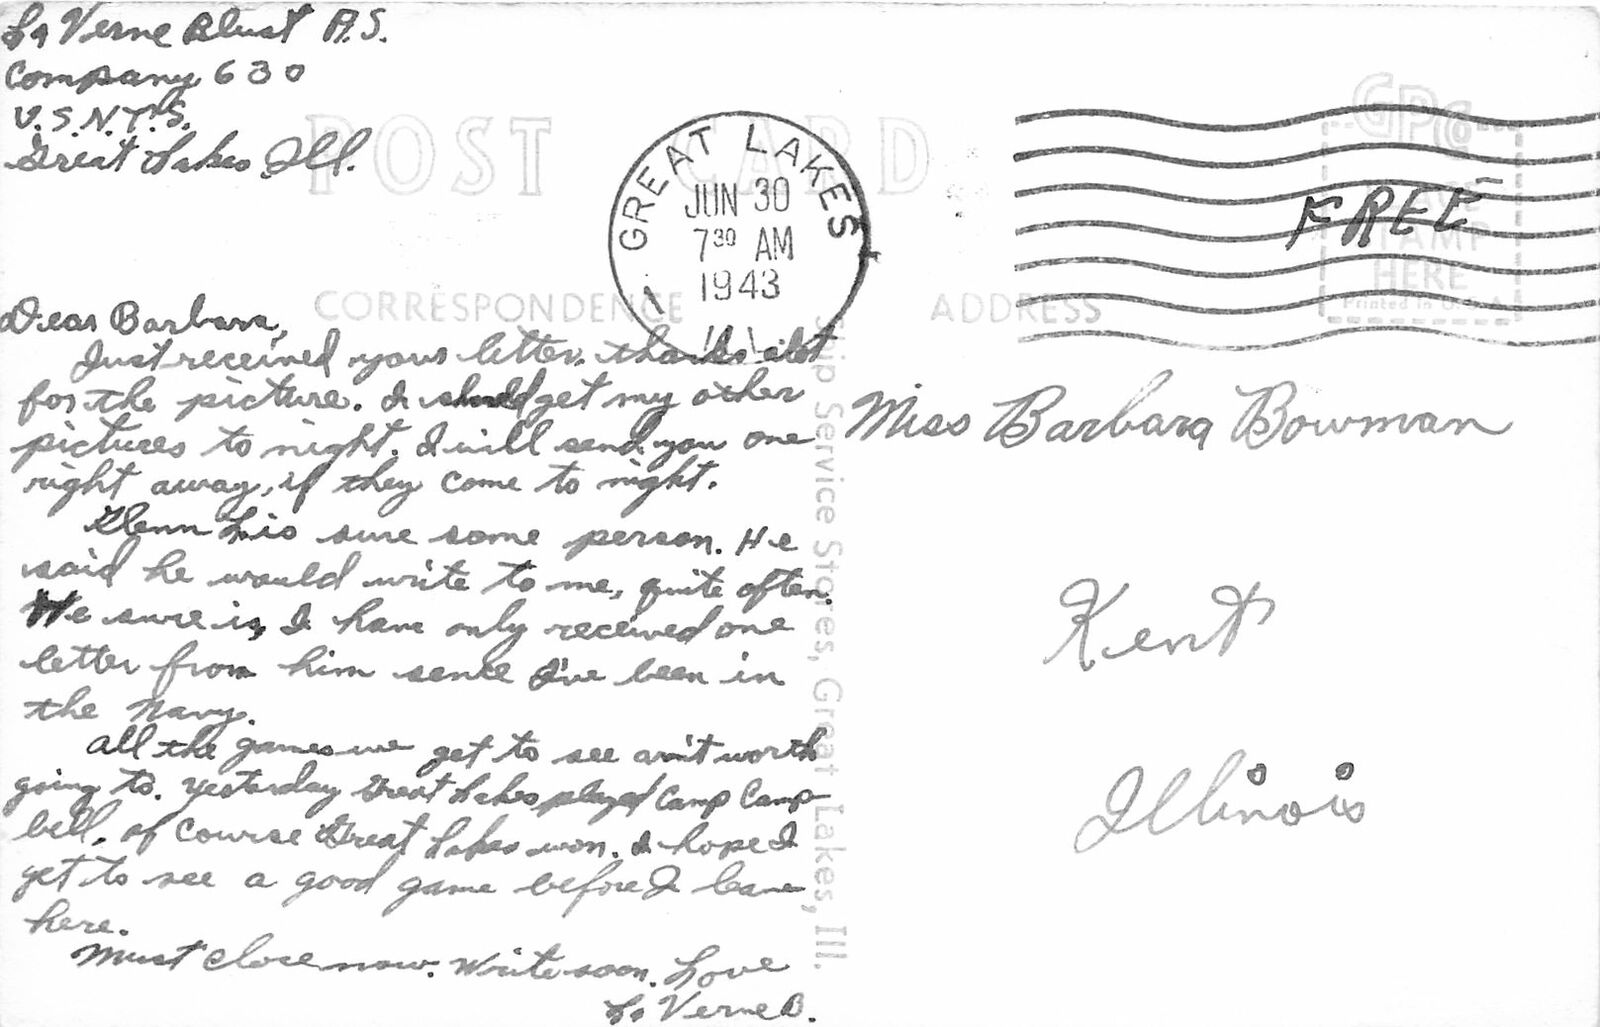 La Verne Blust A.S.
Company 630
U.S.N.T.S.
Great Lakes, Ill.
POST CARD
GREAT LAKES
JUN 30
7 30 AM
1943
ILL.
GPCo
PLACE
STAMP
HERE
Printed in U.S.A.
FREE
CORRESPONDENCE
ADDRESS
Dear Barbara,
Just received your letter. thanks alot
for the picture. I should get my other
pictures to night. I will send you one
right away, if they come to night.
Glenn L is sure some person. He
said he would write to me, quite often.
He sure is, I have only received one
letter from him sence I've been in
the Navy.
All the games we get to see ain't worth
going to. Yesterday Great Lakes played Camp Camp-
bell, of course Great Lakes won. I hope I
get to see a good game before I leave
here.
Must close now. Write soon. Love
La Verne B.
Ship Service Stores, Great Lakes, Ill.
Miss Barbara Bowman
Kent
Illinois